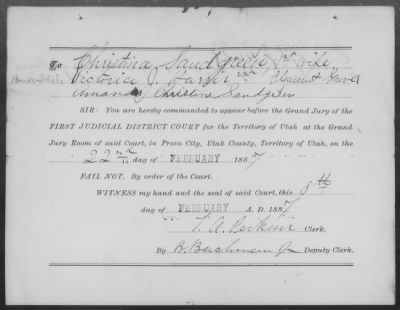 To Christina Sandgreen, 1st Wife,
Victoria J.
Amanda Christine Sandgren
SIR: You are hereby commanded to appear before the Grand Jury of the
FIRST JUDICIAL DISTRICT COURT for the Territory of Utah at the Grand
Jury Room of said Court, in Provo City, Utah County, Territory of Utah, on the
22nd day of FEBRUARY 1887
FAIL NOT. By order of the Court.
WITNESS my hand and the seal of said Court, this 8th
day of FEBRUARY A. D. 1887
Clerk.
By B. Bachman Jr Deputy Clerk.